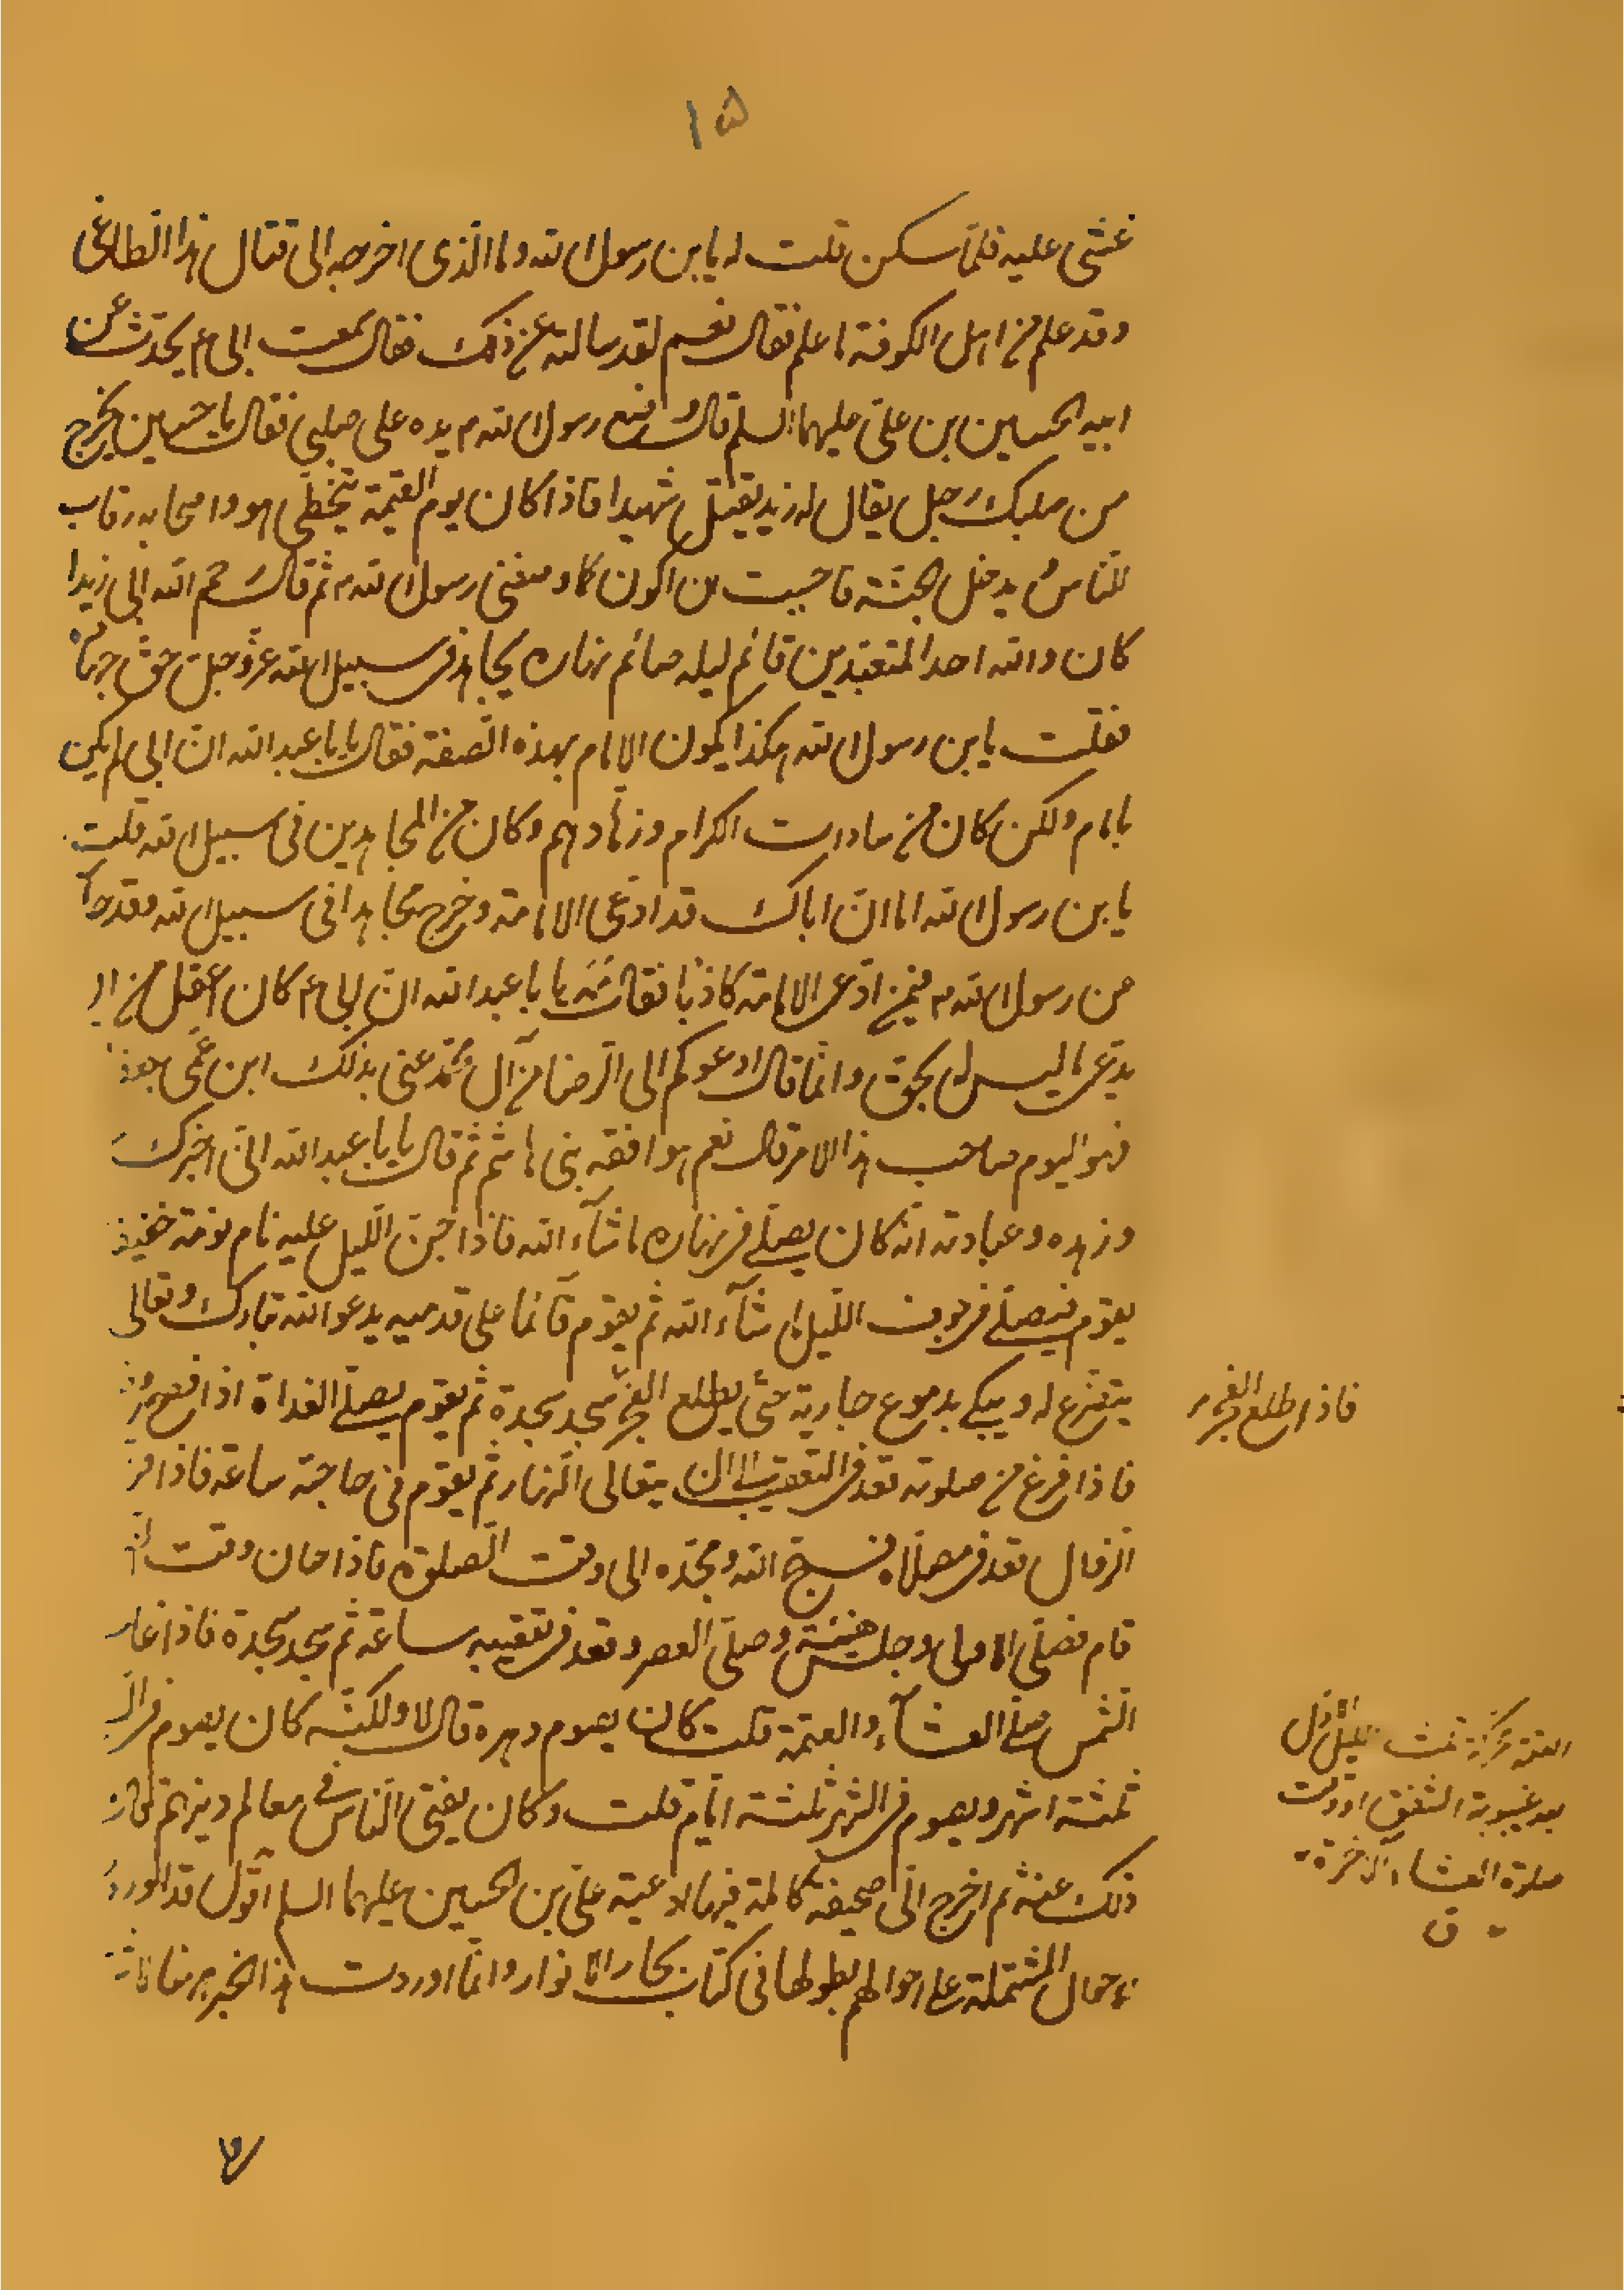 ١٥
غشى عليه فلما سكن قلت له يابن رسول الله وما الذى اخرجه الى قتال هذا الطاغى
وقد علم من اهل الكوفة ما علم فقال نعم لقد سالته عن ذلك فقال سمعت ابى ع يحدث عن
ابيه الحسين بن على عليهما السلم قال وضع رسول الله ص يده على صلبى فقال يا حسين يخرج
من صلبك رجل يقال له زيد يقتل شهيدا فاذا كان يوم القيمة يتخطى هو واصحابه رقاب
الناس و يدخل الجنة فاحببت ان اكون كما وصفنى رسول الله ص ثم قال رحم الله ابى زيدا
كان والله احد المتعبدين قائم ليله صائم نهاره يجاهد فى سبيل الله عز وجل حق جهاده
فقلت يابن رسول الله هكذا يكون الامام بهذه الصفة فقال يا با عبد الله ان ابى لم يكن
بامام ولكن كان من سادات الكرام وزهادهم وكان من المجاهدين فى سبيل الله قلت
يابن رسول الله اما ان اباك قد ادعى الامامة وخرج مجاهدا فى سبيل الله وقد جا
عن رسول الله ص فيمن ادعى الامامة كاذبا فقال مه يا با عبد الله ان ابى ع كان اعقل من ان
يدعى ما ليس له بحق وانما قال ادعوكم الى الرضا من آل محمد عنى بذلك ابن عمى جعفر
فهو اليوم صاحب هذا الامر قال نعم هو افقه بنى هاشم ثم قال يا با عبد الله انى اخبرك
وزهده وعبادته انه كان يصلى فى نهاره ما شآء الله فاذا جن الليل عليه نام نومة خفيفة
يقوم فيصلى فى جوف الليل ما شآء الله ثم يقوم قآئما على قدميه يدعو الله تبارك وتعالى
يتضرع له ويبكى بدموع جارية حتى يطلع الفجر سجد سجدة ثم يقوم يصلى الغداة اذا وضح
فاذا طلع الفجر
فاذا فرغ من صلوته قعد فى التعقيب الى ان يتعالى النهار ثم يقوم فى حاجته ساعة فاذا قرب
الزوال قعد فى مصلاه فسبح الله ومجده الى وقت الصلوة فاذا حان وقت
قام فصلى الاولى وجلس هنيئة وصلى العصر وقعد فى تعقيبه ساعة ثم سجد سجدة فاذا غابت
الشمس صلى العشآء والعتمة قلت كان يصوم دهره قال لا ولكنه كان يصوم فى
العتمة محركة ثلث الليل الاول
بعد غيبوبة الشفق او وقت
صلوة العشاء الآخرة
ق
ثلثة اشهر ويصوم فى الشهر ثلثة ايام قلت وكان يفتى الناس فى معالم دينهم قال
ذلك عنه ثم اخرج الى صحيفة كاملة فيها ادعية على بن الحسين عليهما السلم اقول قد اورد
الاحوال المشتملة على احوالهم بطولها فى كتاب بحار الانوار وانما اوردت هذا الخبر هنا